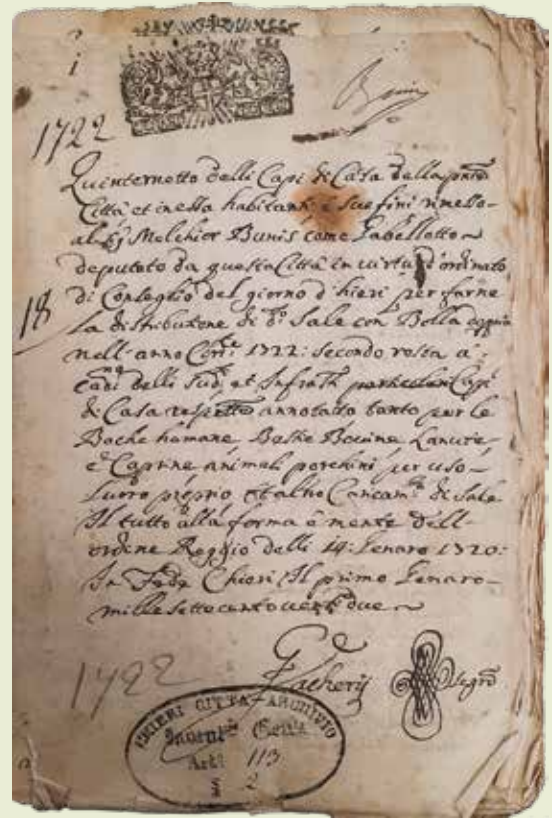 1722
Quinternetto delli Capi di Casa della pnte
Città et in essa habitanti e sue fini rimesso
al Sig Melchior Bunis come Gabellotto
deputato da questa Città in virtù d'ordinato
di Conseglio del giorno d'hieri per farne
18
la distributione di d.o Sale con Bolla
nell'anno Corr.te 1722: secondo resta a
cad.no delli Sud.i et Infratti particolari Capi
di Casa respetto annotatto tanto per le
Boche humane Bestie Bovine Lanute
e Caprine animali porchini per uso
Lurro proprio et altro Cancam.to di Sale
Il tutto alla forma e mente dell'
ordine Reggio delli 14: Genaro 1720:
In Fede Chieri Il primo Genaro
mille sette cento venti due
1722
Segro
CHIERI CITTA ARCHIVIO
Art 113
§ 2